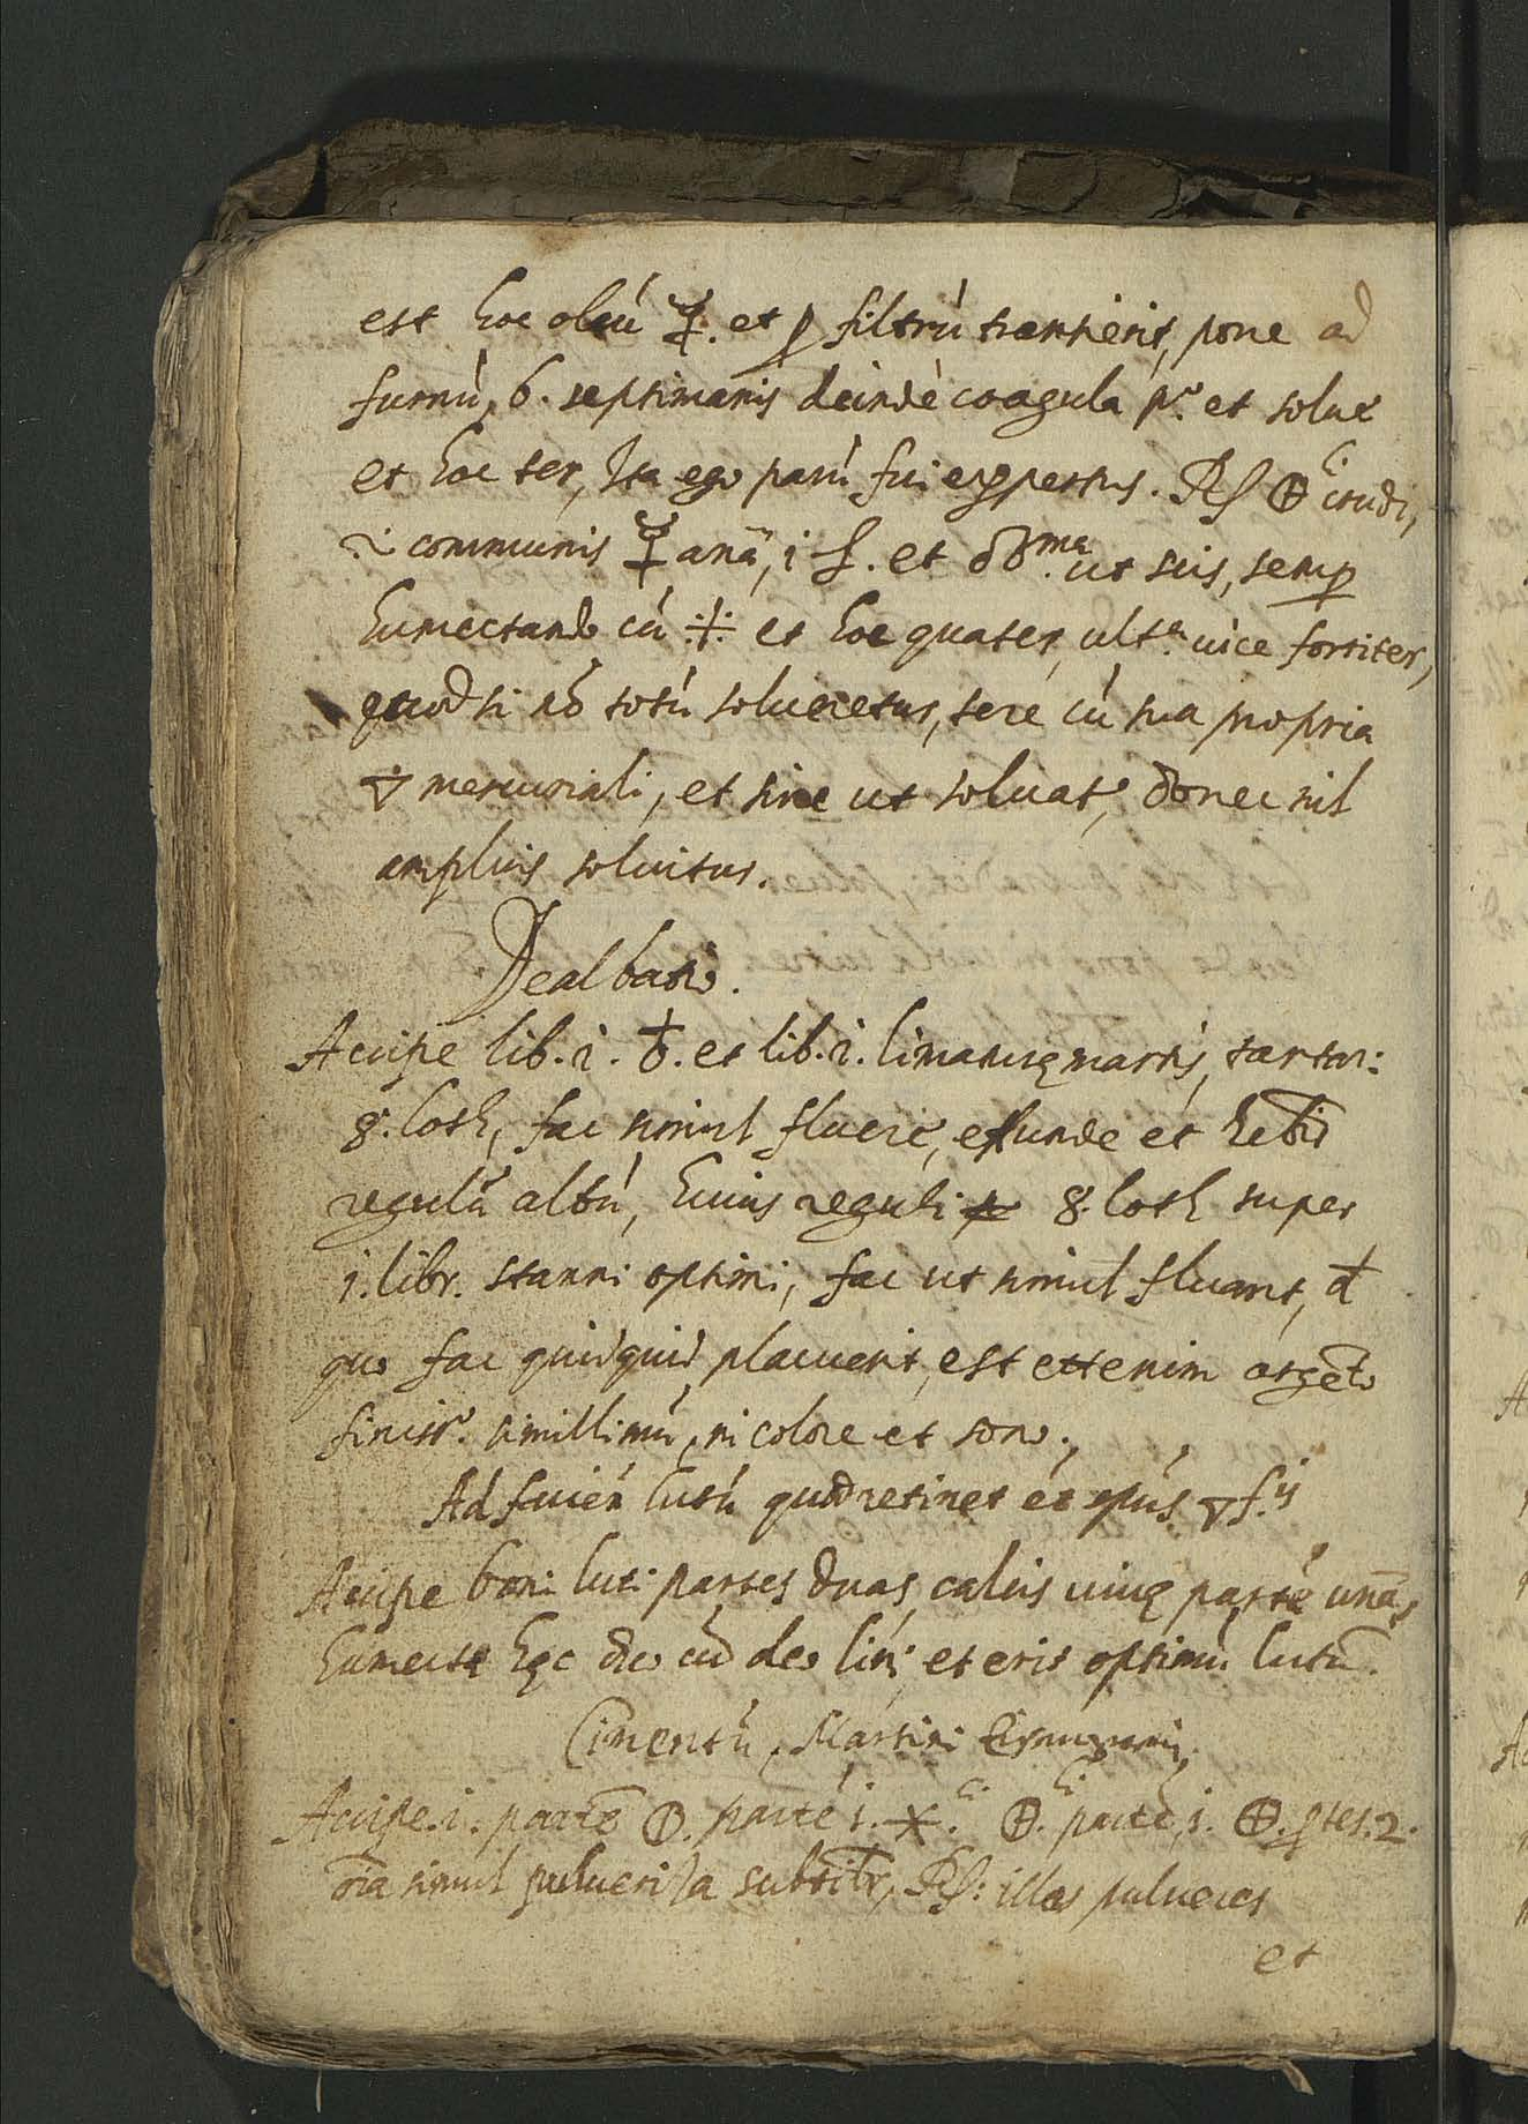 est hoc oleú ☿. et ꝑ filtrú transierit, pone ad
furnú, 6. septimanis deindè coagula pº. et solue
et hoc ter, Ita ego parú fui expertus. Rſ crudi,
communis ☿ anã, i ſ. et ut scis, semp
humectando cú et hoc quater, ultª. uice fortiter,
quod si nõ totú solueretur, tere cú sua propria
mercuriali, et sine ut soluat, donec nil
amplius soluitur.
Dealbatio.
Accipe lib. i. ♁. et lib. i. limaturę martis, tartari:
8. loth, fac simul fluere, effunde et hebis
regulú albú, huius reguli 8. loth super
i. libr. stanni optimi, fac ut simul fluant, d
quo fac quidquid placuerit, est etenim argẽto
finissº. simillimú, in colore et sono.
Ad faciẽn lutú quod retinet
Accipe boni luti partes duas, calcis uiuę partẽ unã,
humecta hęc cú oleo lini, et erit optimú lutũ.
Cimentú Martini
Accipe. i. partẽ partẽ i. ✶. partẽ, i. ptes. 2.
oia simul pulueriza subtilr, Rſ: illos pulueres
et